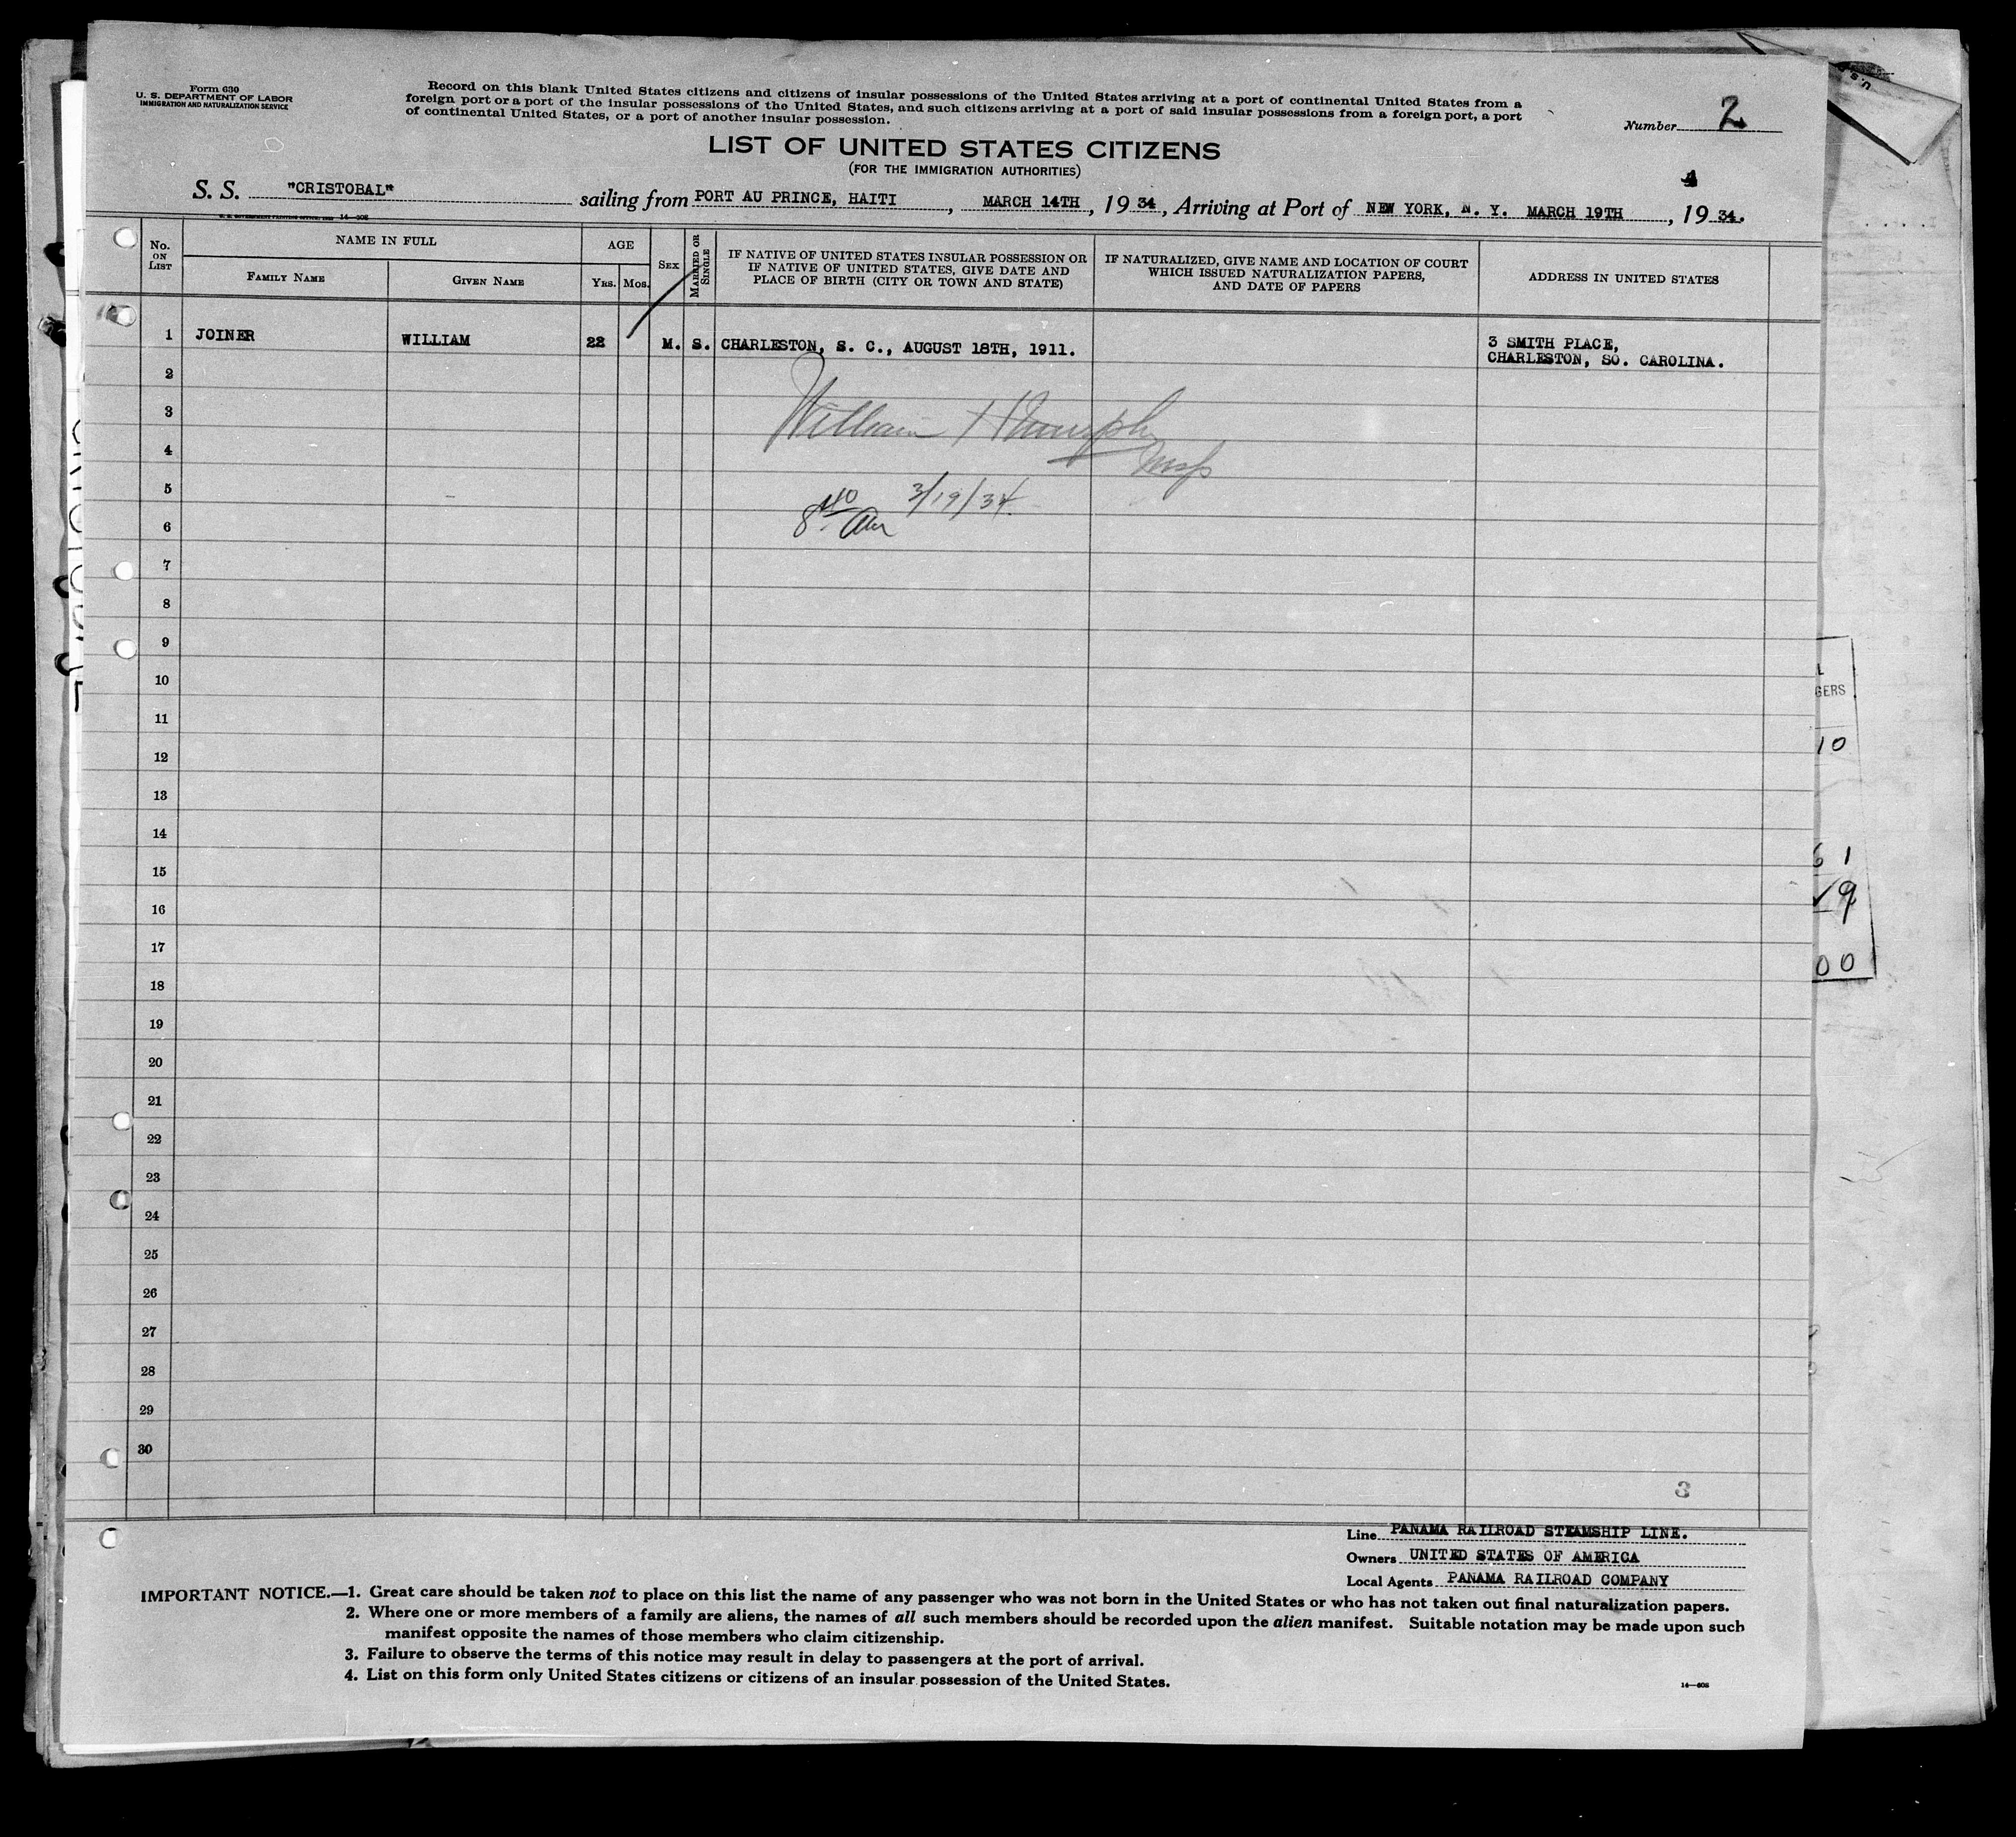 Form 630
U. S. DEPARTMENT OF LABOR
IMMIGRATION AND NATURALIZATION SERVICE
Record on this blank United States citizens and citizens of insular possessions of the United States arriving at a port of continental United States from a
foreign port or a port of the insular possessions of the United States, and such citizens arriving at a port of said insular possessions from a foreign port, a port
of continental United States, or a port of another insular possession.
Number 2
LIST OF UNITED STATES CITIZENS
(FOR THE IMMIGRATION AUTHORITIES)
S. S. "CRISTOBAL" sailing from PORT AU PRINCE, HAITI, MARCH 14TH, 1934, Arriving at Port of NEW YORK, N. Y. MARCH 19TH, 1934.
No. ON LIST
NAME IN FULL
FAMILY NAME
GIVEN NAME
AGE
YRS. MOS.
SEX
MARRIED OR SINGLE
IF NATIVE OF UNITED STATES INSULAR POSSESSION OR
IF NATIVE OF UNITED STATES, GIVE DATE AND
PLACE OF BIRTH (CITY OR TOWN AND STATE)
IF NATURALIZED, GIVE NAME AND LOCATION OF COURT
WHICH ISSUED NATURALIZATION PAPERS,
AND DATE OF PAPERS
ADDRESS IN UNITED STATES
1 JOINER WILLIAM 22 M. S. CHARLESTON, S. C., AUGUST 18TH, 1911. 3 SMITH PLACE,
CHARLESTON, SO. CAROLINA.
2
3
William
4
5
3/19/34
6
8 40 am
7
8
9
10
11
12
13
14
15
16
17
18
19
20
21
22
23
24
25
26
27
28
29
30
3
Line PANAMA RAILROAD STEAMSHIP LINE.
Owners UNITED STATES OF AMERICA
Local Agents PANAMA RAILROAD COMPANY
IMPORTANT NOTICE.—1. Great care should be taken not to place on this list the name of any passenger who was not born in the United States or who has not taken out final naturalization papers.
2. Where one or more members of a family are aliens, the names of all such members should be recorded upon the alien manifest. Suitable notation may be made upon such
manifest opposite the names of those members who claim citizenship.
3. Failure to observe the terms of this notice may result in delay to passengers at the port of arrival.
4. List on this form only United States citizens or citizens of an insular possession of the United States.